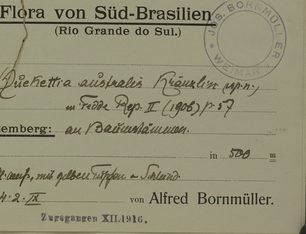 Flora von Süd-Brasilien
(Rio Grande do Sul.)
JOS. BORNMÜLLER
WEIMAR
australis Kränzlin
in Fedde Rep. II (1906) p. 57
temberg: an Baumstämmen.
in 500 m
mit gelben
von Alfred Bornmüller.
Zugegangen XII. 1916.